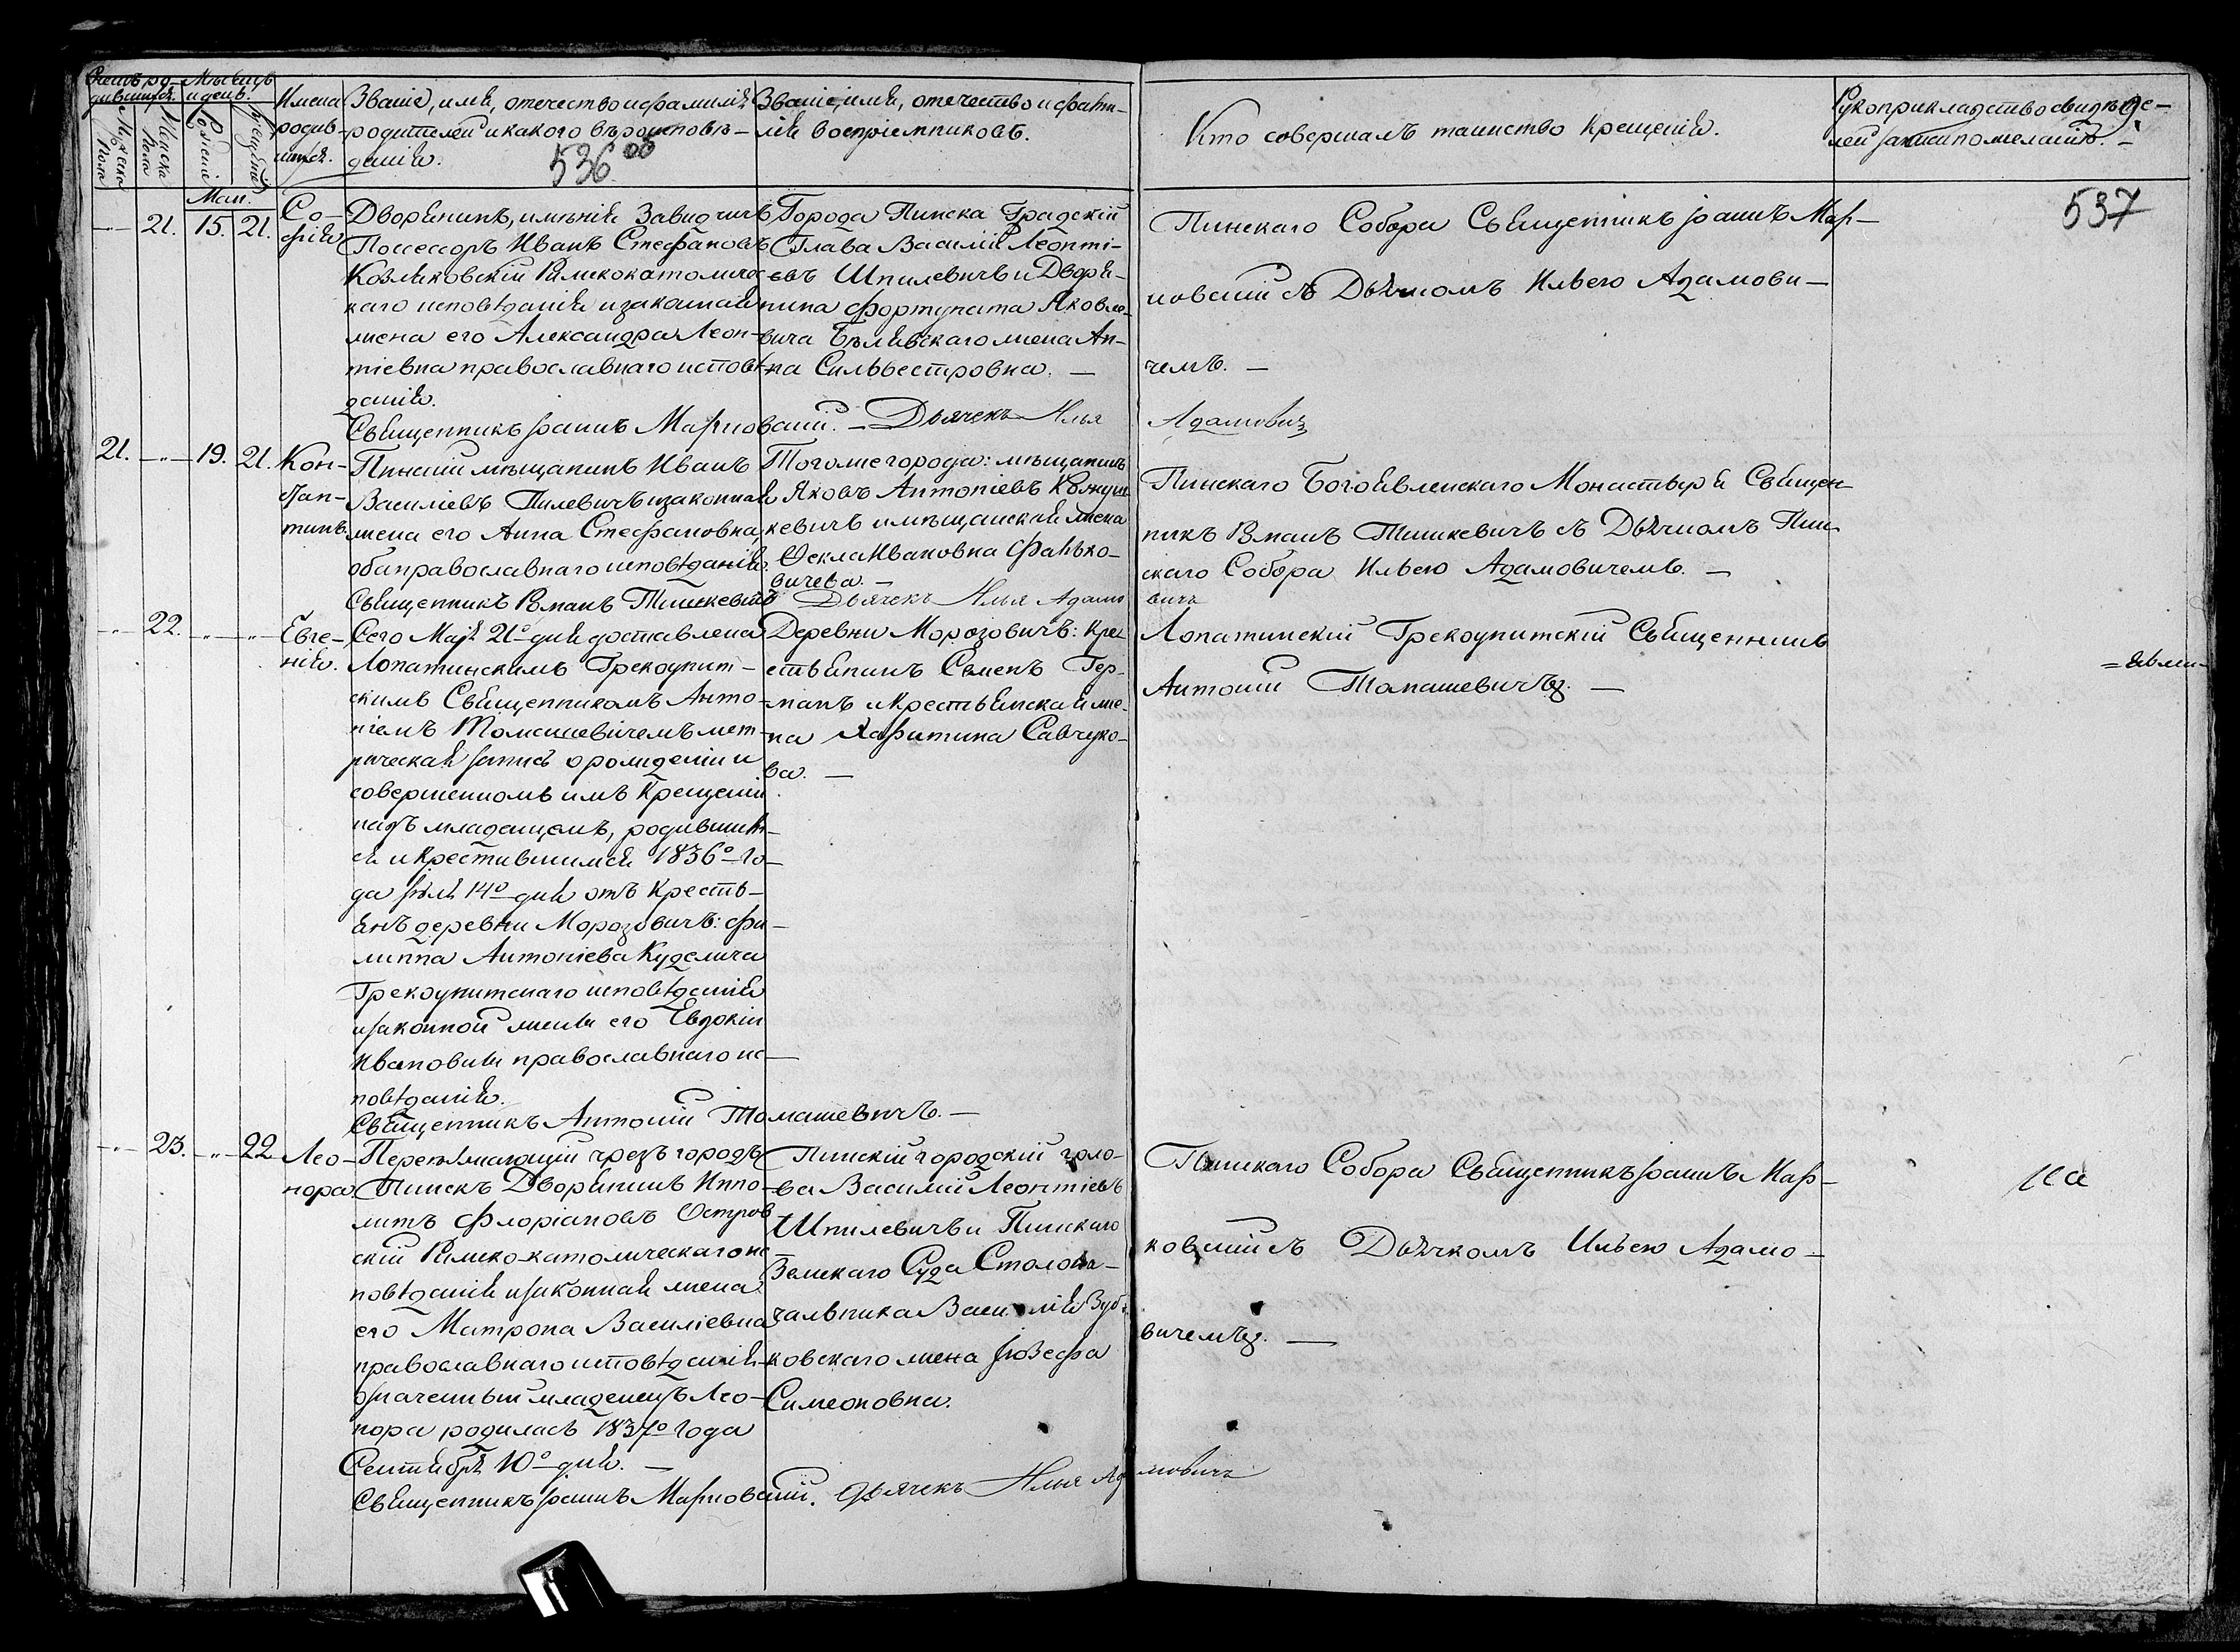 Счетъ ро-
дившихся.
Мѣсяцъ
и день.
Мужеска
пола
Женска
пола
Рожденія
Крещенія
Имена
родив-
шихся.
Званіе, имя, отечество и фамилія
родителей и какого вѣроисповѣ-
данія.
536 об
Званіе, имя, отечество и фами-
лія воспріемниковъ.
Кто совершалъ таинство Крещенія.
Рукоприкладство свидѣте-
лей записи по желанію. —
537
Маи.
21. 15. 21.
Со-
фія
Дворянинъ, имѣнія Завидчичъ
Поссессоръ Иванъ Стефановъ
Козляковскій Римскокатоличес
каго исповѣданія и законная
жена его Александра Леон-
тіевна православнаго исповѣ-
данія.
Города Пинска Градскій
Глава Василій Леонті-
евъ Шпилевичъ и Дворя-
нина Фортуната Яковле-
вича Бѣлявскаго жена Ан-
на Сильвестровна. —
Пинскаго Собора Священникъ Іоаннъ Мар-
новскій съ Дьячкомъ Ильею Адамови-
чемъ. —
Священникъ Іоаннъ Марновскій. — Дьячекъ Илья Адамовичъ
21. — 19. 21.
Кон-
стан-
тинъ.
Пинскій мѣщанинъ Иванъ
Василіевъ Пилевичъ и законная
жена его Анна Стефановна,
оба православнаго исповѣданія.
Того же города: мѣщанинъ
Яковъ Антоніевъ Кожуш
кевичъ и мѣщанская жена
Ѳекла Ивановна Фанько-
вичева. —
Пинскаго Богоявленскаго Монастыря Священ
никъ Романъ Тышкевичъ съ Дьячкомъ Пин
скаго Собора Ильею Адамовичемъ. —
Священникъ Романъ Тышкевичъ Дьячекъ Илья Адамо
вичъ
22.
Евге-
нія.
Сего Маія 21го дня доставлена
Лопатинскимъ Грекоунит-
скимъ Священникомъ Анто-
ніемъ Томашевичемъ мет-
рическая запись о рожденіи и
совершенномъ имъ Крещеніи
надъ младенцемъ, родившим-
ся и крестившимся 1836го го-
да Іюля 14го дня отъ Кресть-
янъ деревни Морозовичъ: Фи-
липпа Антоніева Куделича
Грекоунитскаго исповѣданія
и законной жены его Евдокіи
Ивановны православнаго ис-
повѣданія.
Деревни Морозовичъ: Кре
стьянинъ Семенъ Гер-
манъ и Крестьянская же-
на Харитина Савчуко-
ва. —
Лопатинскій Грекоунитскій Священникъ
Антоній Томашевичъ. —
Священникъ Антоній Томашевичъ. —
23. 22
Лео-
нора.
Переѣзжающій чрезъ городъ
Пинскъ Дворянинъ Иппо-
литъ Флоріановъ Остров
скій Римско-католическаго ис
повѣданія и законная жена
его Матрона Василіевна
православнаго исповѣданія
означенный младенецъ Лео-
нора родилась 1837го Года
Сентября 10го дня. —
Пинскій городскій голо-
ва Василій Леонтіевъ
Шпилевичъ и Пинскаго
Земскаго Суда Столона-
чальника Василія Зуб
ковскаго жена Іозефа
Симеоновна.
Пинскаго Собора Священникъ Іоаннъ Мар-
ковскій съ Дьячкомъ Ильею Адамо-
вичемъ. —
Священникъ Іоаннъ Марновскій. Дьячекъ Илья Адамовичъ